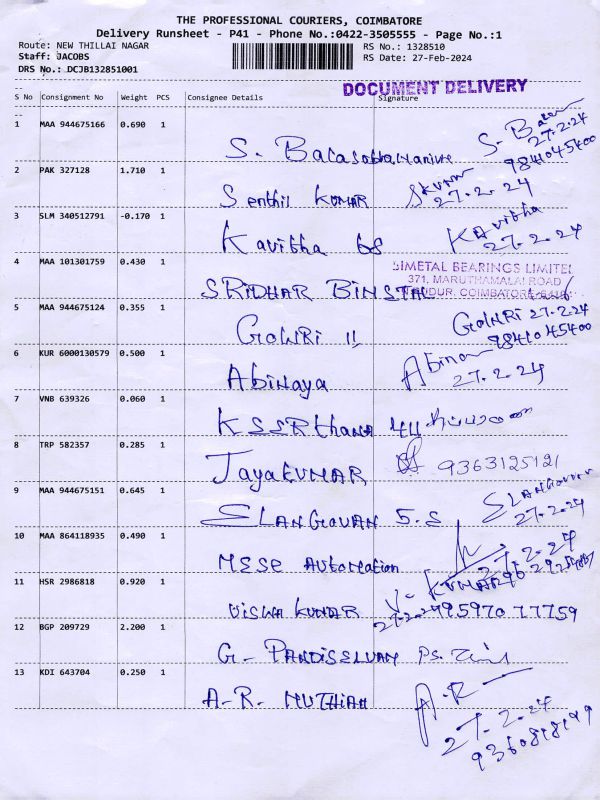 THE PROFESSIONAL COURIERS, COIMBATORE
Delivery Runsheet - P41 - Phone No.:0422-3505555 - Page No.:1
Route: NEW THILLAI NAGAR
RS No.: 1328510
Staff: JACOBS
RS Date: 27-Feb-2024
DRS No.: DCJB132851001
DOCUMENT DELIVERY
S No Consignment No Weight PCS Consignee Details Signature
1 MAA 944675166 0.690 1 S. Balasubramaniam S. Balan
27.2.24
9841045400
2 PAK 327128 1.710 1 Senthil KUMAR
27.2.24
3 SLM 340512791 -0.170 1 Kavitha KAvitha
27.2.24
4 MAA 101301759 0.430 1 SRIDHAR BIMSTAL
BIMETAL BEARINGS LIMITED
371, MARUTHAMALAI ROAD
COIMBATORE
5 MAA 944675124 0.355 1 GOWRI 11 GOWRI 27.2.24
9841045400
6 KUR 6000130579 0.500 1 Abinaya Abinaya
27.2.24
7 VNB 639326 0.060 1 44
8 TRP 582357 0.285 1 JayaKUMAR 9363125121
9 MAA 944675151 0.645 1 ELANGOVAN S.S ELANGOVAN
27.2.24
10 MAA 864118935 0.490 1 Automation
27.2.24
11 HSR 2986818 0.920 1 VISWA KUMAR V- KUMAR
27.2.24 9959707 7759
12 BGP 209729 2.200 1 G- PANDISELVAM
13 KDI 643704 0.250 1 A-R- MUTHIAH A.R
27.2.24